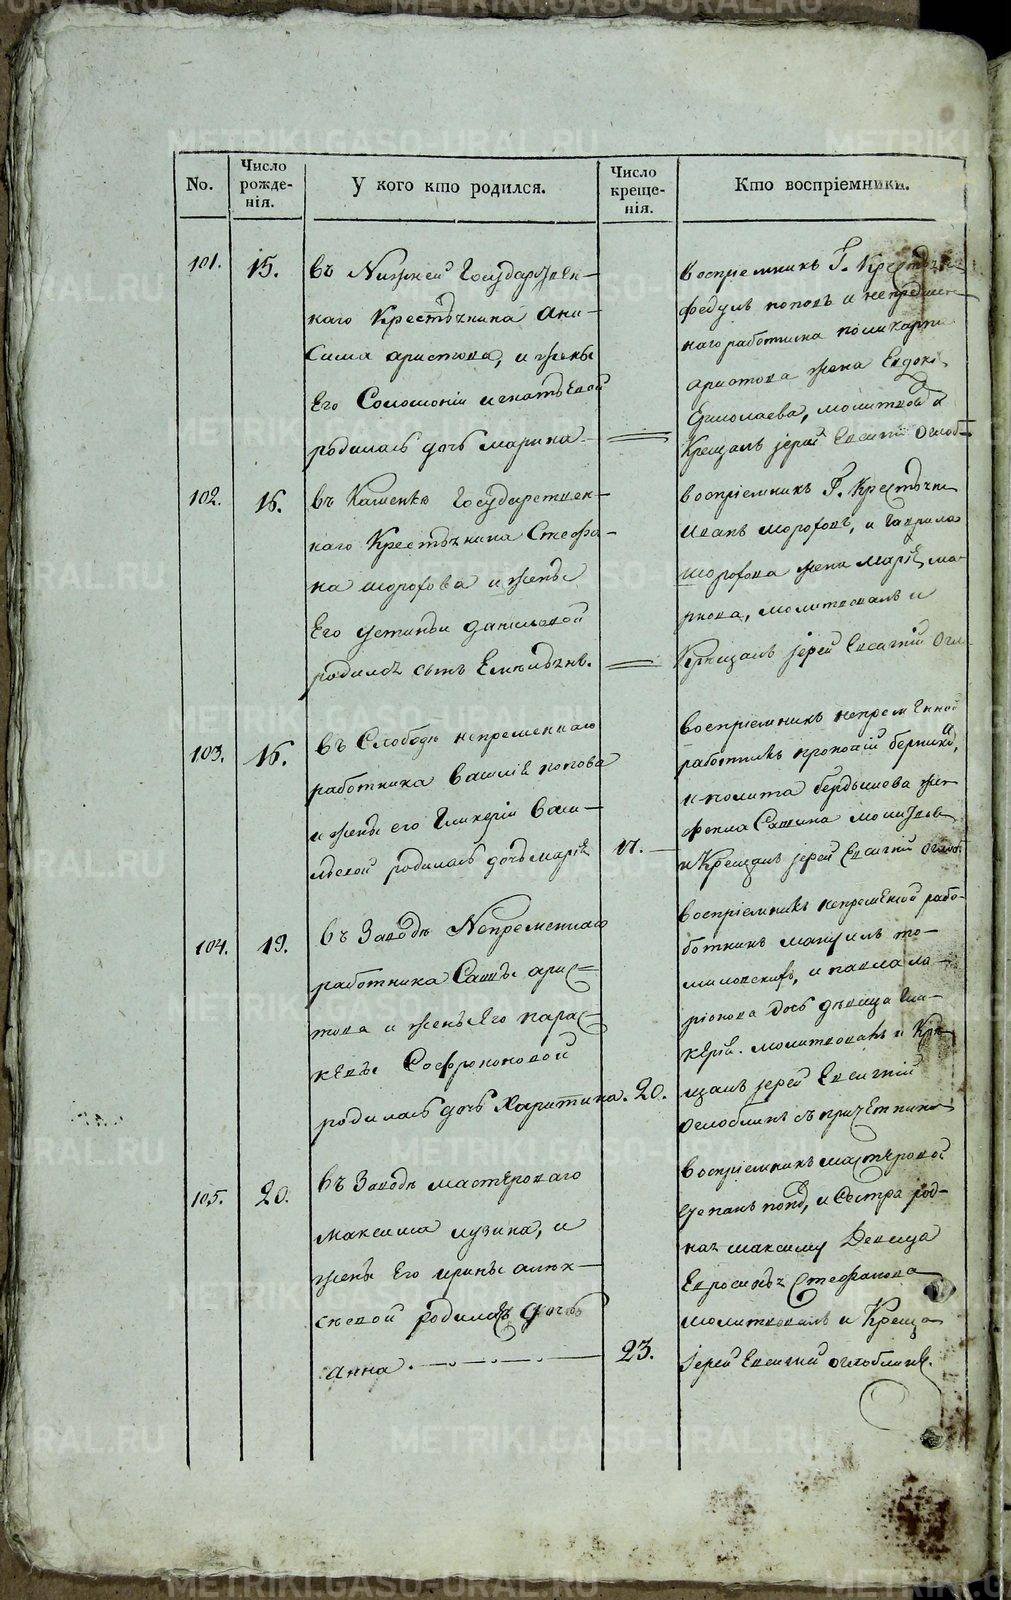 No.
Число рожде-нія.
У кого кто родился.
Число креще-нія.
Кто воспріемники.
101.
15.
въ Нижней Государствен-
наго Крестьянина Ани-
сима аристова, и жены
Его Соломоніи игнатьевой
родилась дочь марина
воспріемникъ Г. Крестьян
федулъ поповъ и непремен
наго работника поликарпа
аристова жена Евдокі
Ермолаева, молитвов
Крещалъ іерей Евсигній Оглоб
102.
16.
въ Каменкѣ Государствен-
наго Крестьянина Стефа-
на морозова и жены
Его устиньи даниловой
родился сынъ Емельянъ.
воспріемникъ Г. Крестьян
Иванъ морозовъ, и гаврила
морозова жена Марія ма-
ркова, молитвовалъ и
Крещалъ іерей Евсигній Огл
103.
16.
въ Слободѣ непременнаго
работника василія попова
и жены его Гликеріи васи-
льевой родилась дочь марія
17.
воспріемникъ непременной
работникъ
иполита бердышова
фекла Савина молитвов
и Крещалъ іерей Евсигній Оглоб
104.
19.
въ Заводѣ Непременнаго
работника Саввы арис-
това и жены Его парас-
кевы Софроновой
родилась дочь Харитина.
20.
воспріемникъ непременной рабо-
ботникъ
и павла ла-
ріонова дочь девица Гли-
керія. молитвовалъ и Кре
щалъ іерей Евсигній
Оглоблинъ съ причетники
105.
20.
въ Заводѣ мастероваго
максима лузина, и
жены Его ирины алек-
сѣевой родилась дочь
анна.
23.
воспріемникъ мастеровой
степанъ попов, и Сестра род-
ная максиму Девица
Евросинья Стефанова
молитвовалъ и Креща
іерей Евсигній оглоблинъ.
METRIKI.GASO-URAL.RU